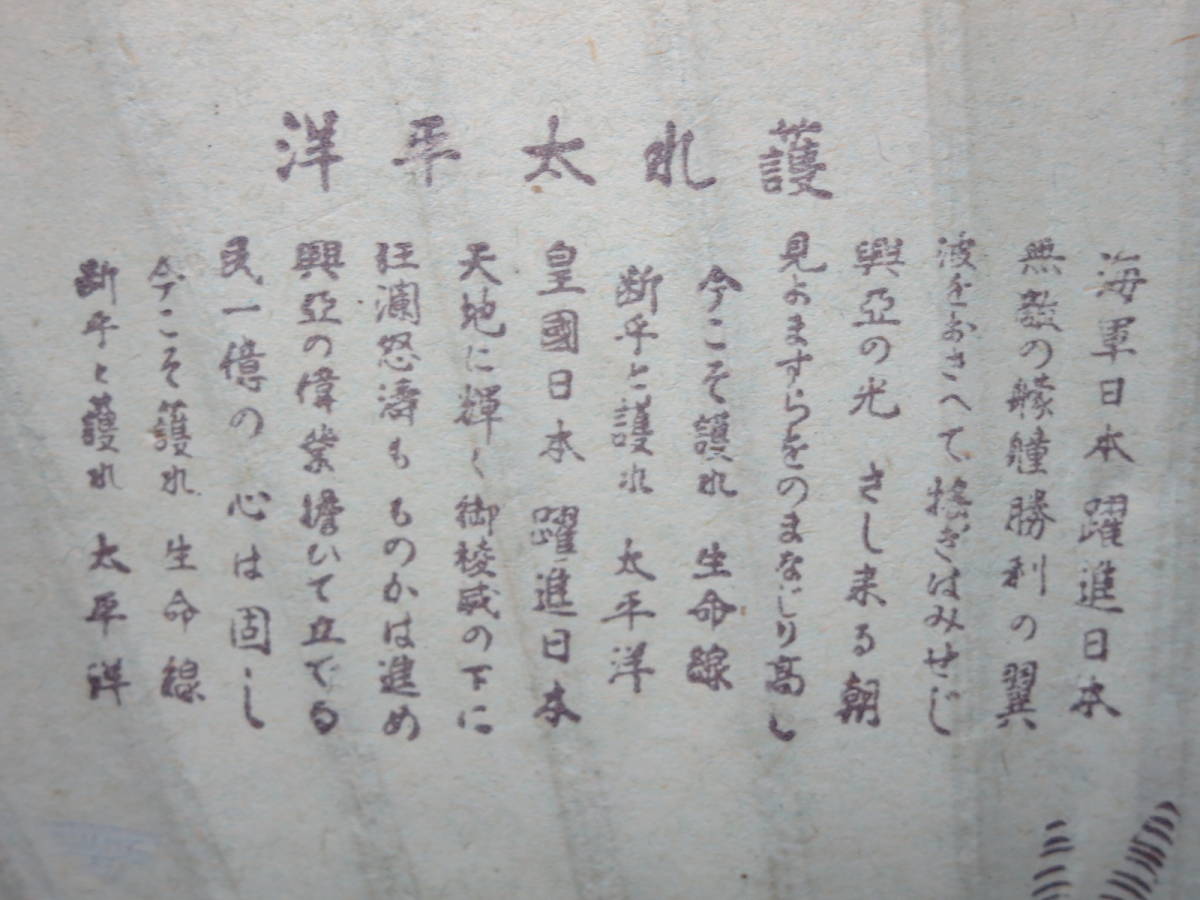 護れ太平洋
海軍日本 躍進日本
無敵の艨艟勝利の翼
波をおさへて揺ぎはみせじ
興亞の光 さし来る朝
見よますらをのまなじり高し
今こそ護れ 生命線
断乎と護れ 太平洋
皇國日本 躍進日本
天地に輝く御稜威の下に
狂瀾怒濤も ものかは進め
興亞の偉業擔ひて立てる
民一億の 心は固し
今こそ護れ 生命線
断乎と護れ 太平洋